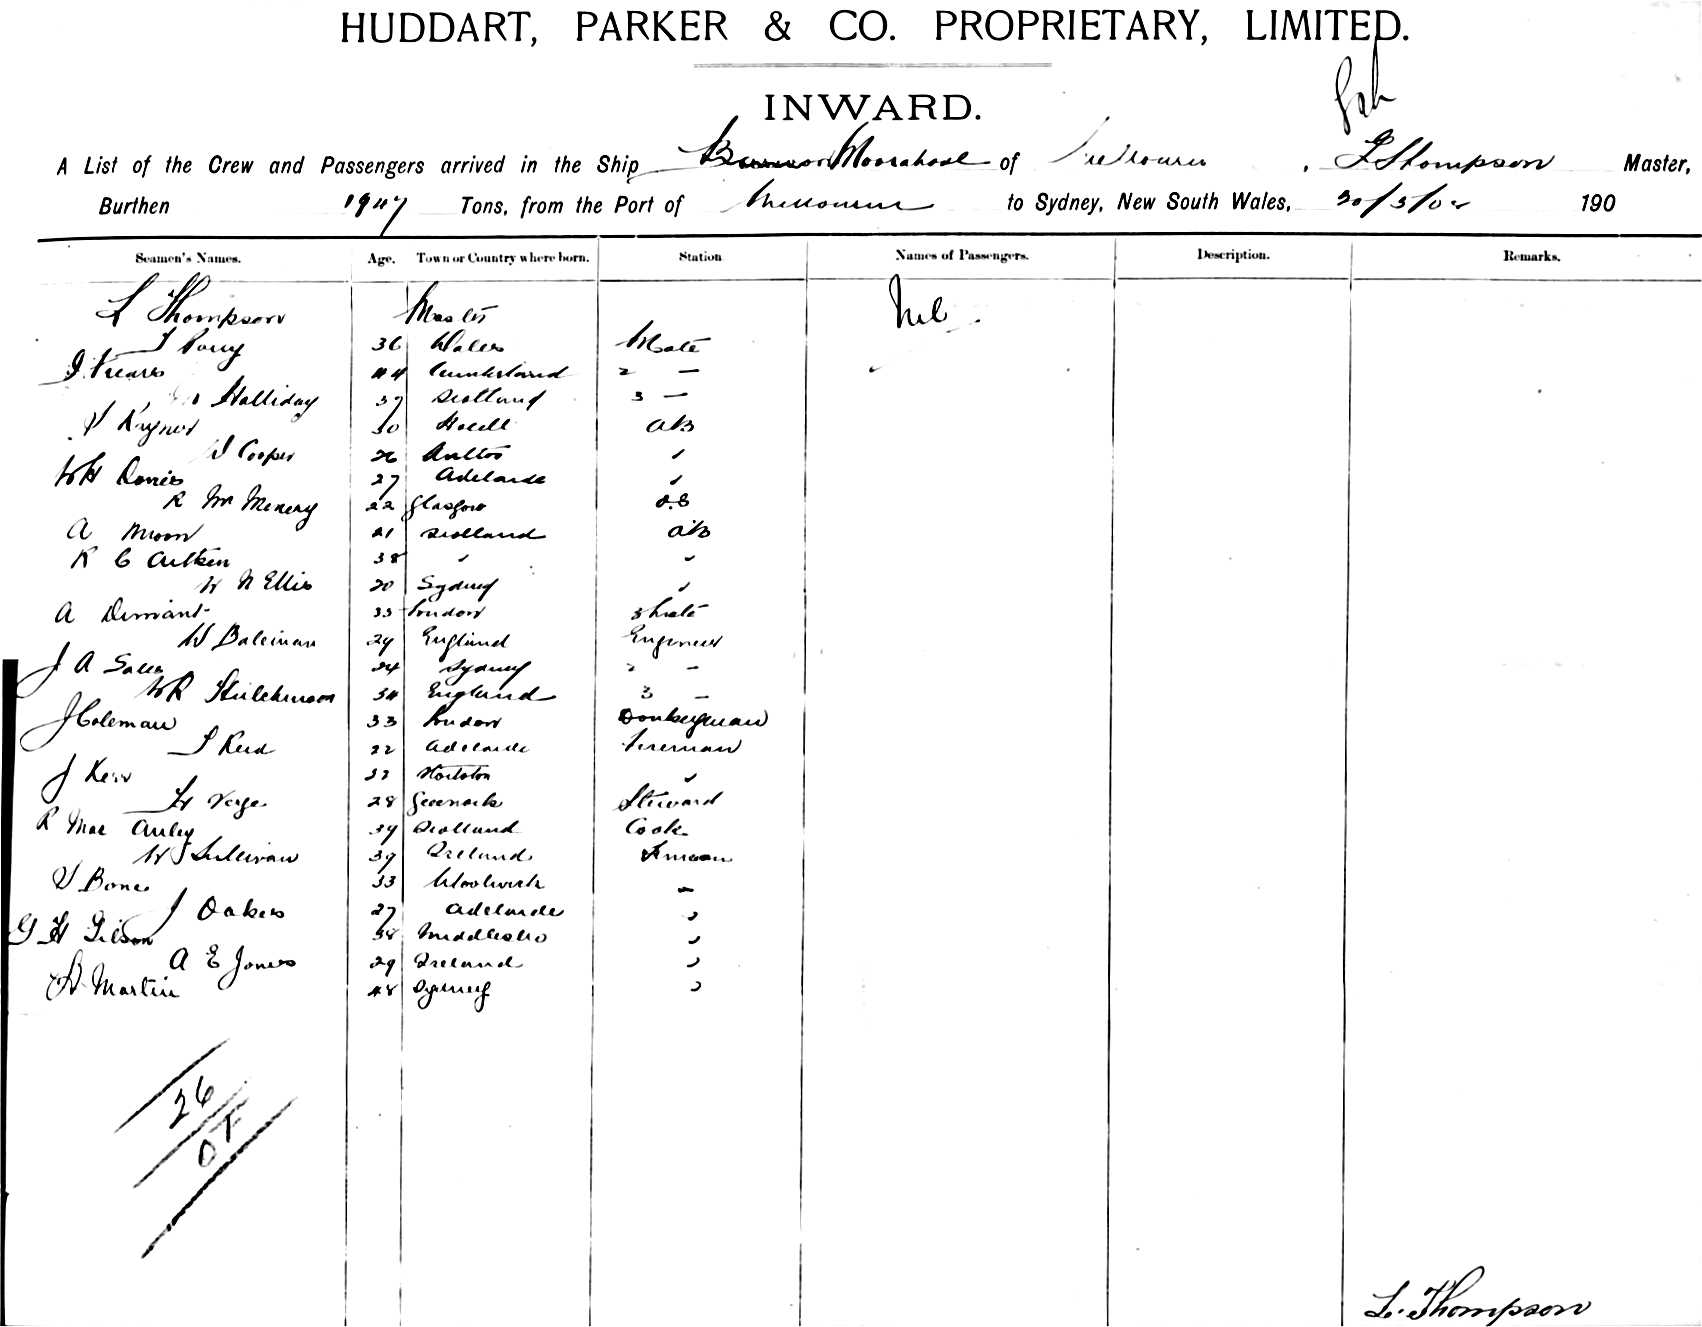 HUDDART, PARKER & CO. PROPRIETARY, LIMITED.
INWARD.
A List of the Crew and Passengers arrived in the Ship Moorabool of Melbourne, L Thompson Master,
Burthen 1947 Tons, from the Port of Melbourne to Sydney, New South Wales, 20/3/02 190
Seamen's Names. Age. Town or Country where born. Station Names of Passengers. Description. Remarks.
L Thompson Master Nil
T Parry 36 Wales Mate
44 Cumberland 2 —
Halliday 37 Scotland 3 —
30 AB
W Cooper 26 ✓
WH Davies 27 Adelaide ✓
R Mc Menemy 22 Glasgow O.S
A Moon 21 Scotland AB
R C Aitken 38 ✓ ✓
W N Ellis 20 Sydney ✓
A 33 London
W Bateman 29 England Engineer
J A 24 Sydney 2 —
WR Hutchinson 34 England 3 —
J Coleman 33 London Donkeyman
Reid 22 Adelaide Fireman
J Kerr
28 Greenock Steward
R Mac Auley 39 Scotland Cook
W Sullivan 39 Ireland Fireman
Bone 33 Woolwich
J Oakes 27 Adelaide
G H Gibson 38 Middlesbro
A E Jones 29 Ireland
Martin 48 Sydney
26
L. Thompson